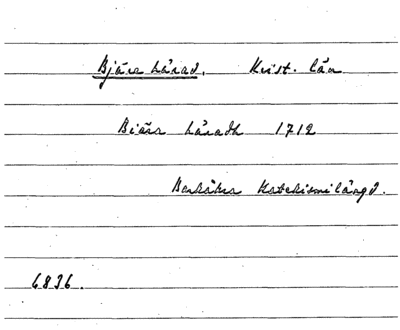 Bjäre härad. Krist. län
Biäre häradh 1712
Barkåkra Katekismilängd.
6836.